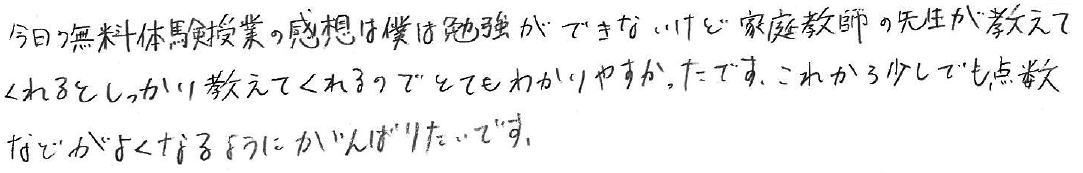 今日の無料体験授業の感想は僕は勉強ができないけど家庭教師の先生が教えて
くれるとしっかり教えてくれるのでとてもわかりやすかったです。これから少しでも点数
などがよくなるようにがんばりたいです。